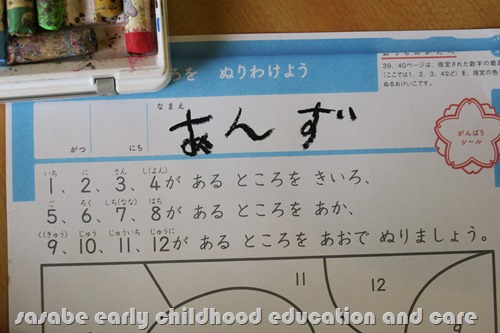 ろを ぬりわけよう
39、40ページは、指定された数字の
(ここでは1、2、3、4など)を、指定の色
ぬるおけいこです。
なまえ
あんず
がつ にち
がんばり
シール
いち に さん し(よん)
1、2、3、4が ある ところを きいろ、
ご ろく しち(なな) はち
5、6、7、8が ある ところを あか、
く(きゅう) じゅう じゅういち じゅうに
9、10、11、12が ある ところを あおで ぬりましょう。
11 12
9
sasabe early childhood education and care